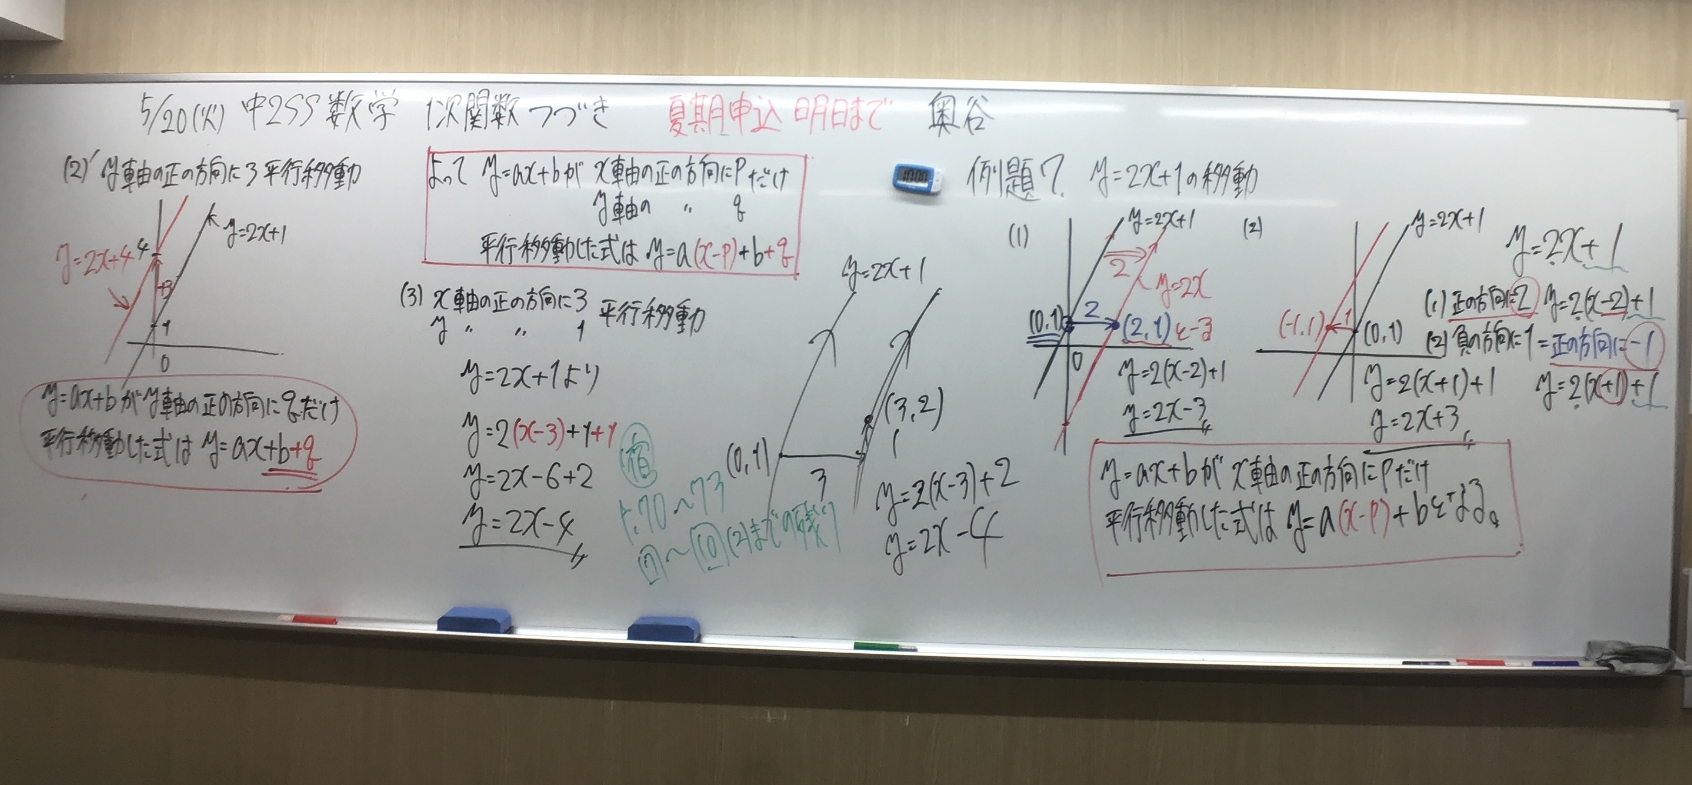 5/20(火) 中2SS 数学 1次関数つづき 夏期申込 明日まで 奥谷
(2)' y軸の正の方向に3平行移動
y=2x+1
y=2x+4
4
+3
1
0
y=ax+bがy軸の正の方向にqだけ
平行移動した式は y=ax+b+q
よって y=ax+bが x軸の正の方向にpだけ
y軸の 〃 q
平行移動した式は y=a(x-p)+b+q
(3) x軸の正の方向に3
y 〃 〃 1 平行移動
y=2x+1より
y=2(x-3)+1+1
y=2x-6+2
y=2x-4
宿
P.70~73
7~10(2)までの残り
y=2x+1
(0,1)
3
(3,2)
1
y=2(x-3)+2
y=2x-4
例題7. y=2x+1の移動
(1)
y=2x+1
2
y=2x
-3
(0,1)
2
(2,1)
0
y=2(x-2)+1
y=2x-3
(2)
y=2x+1
(-1,1)
1
(0,1)
y=2(x+1)+1
y=2x+3
y=2x+1
(1) 正の方向に2 y=2(x-2)+1
(2) 負の方向に1=正の方向に-1
y=2(x+1)+1
y=ax+bが x軸の正の方向にpだけ
平行移動した式は y=a(x-p)+bとなる。